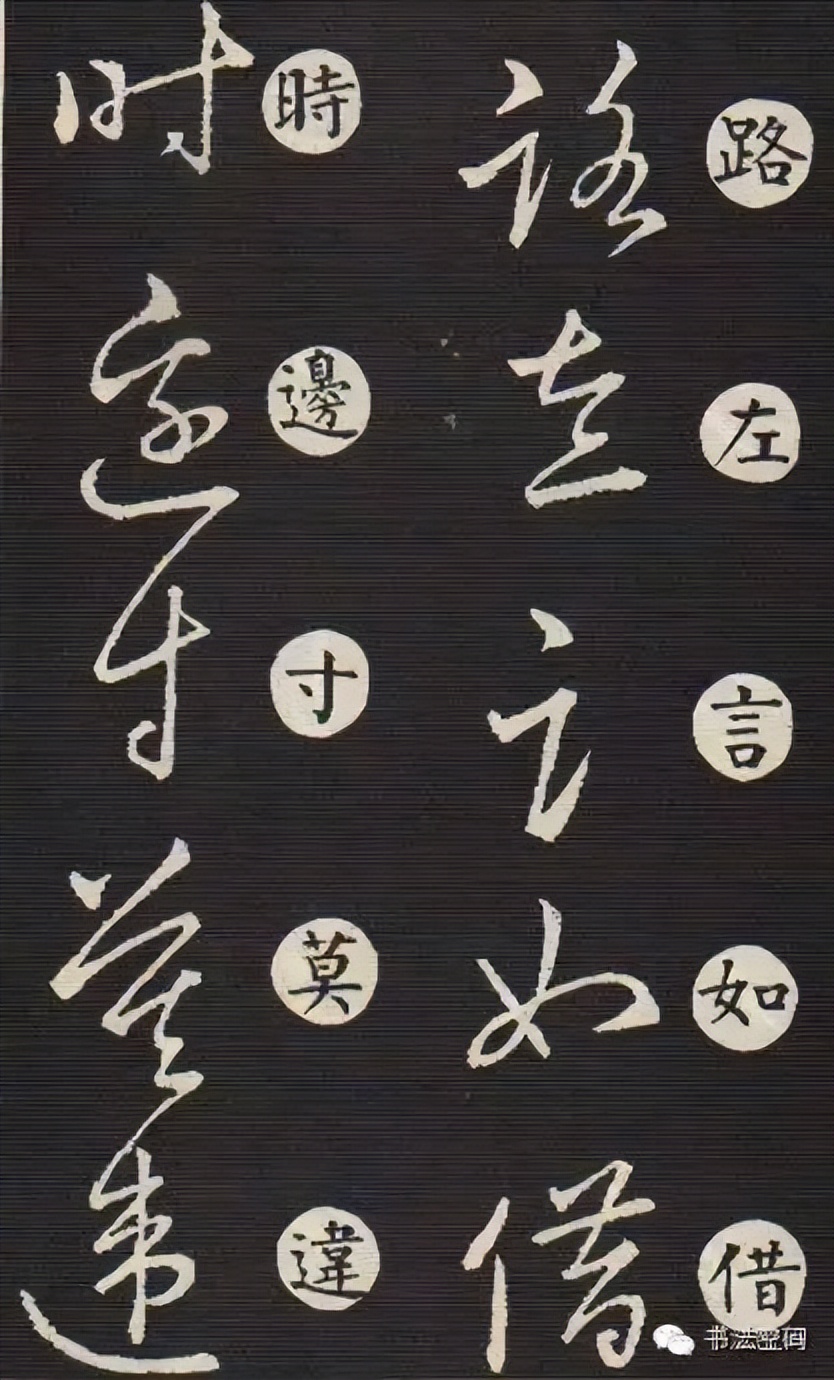 路左言如借
時邊寸莫違
书法密码